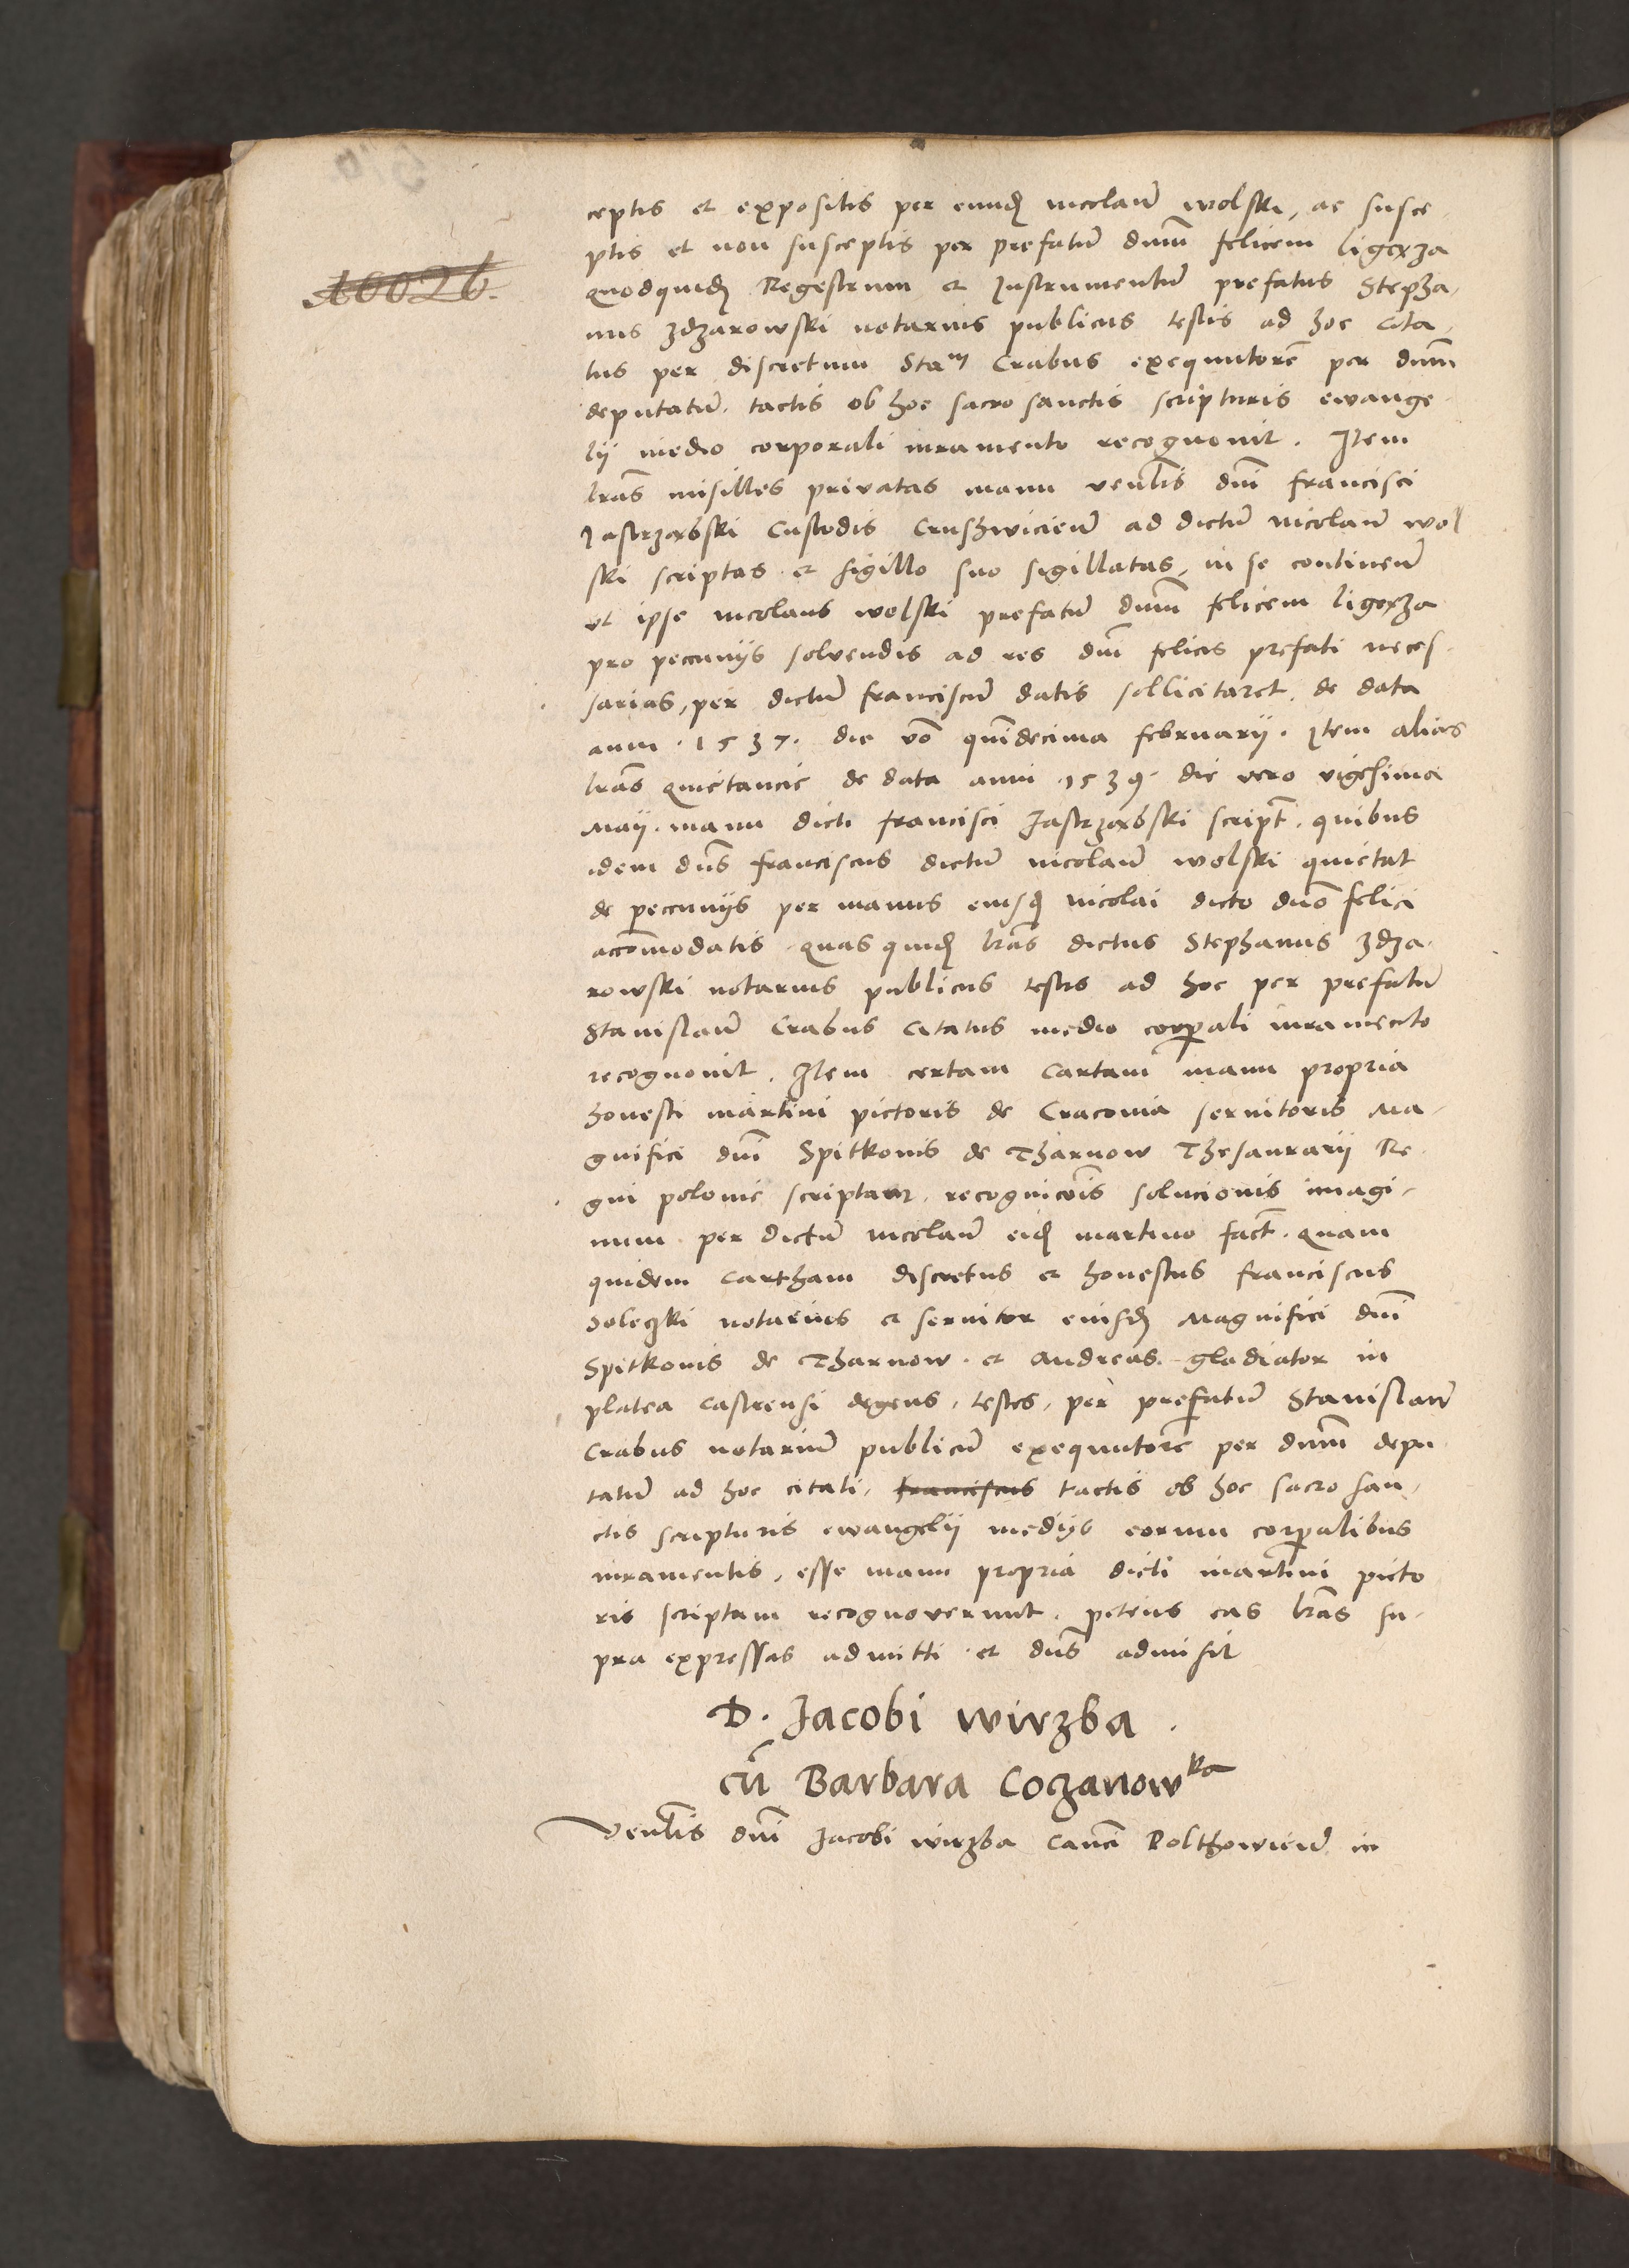 ceptis et expositis per eund nicolaū wolski, ac susce-
ptis et non susceptis per prefatū dnm̄ felicem ligexza
quodquid Regestrum et Instrumentū prefatus Stepha-
nus zdzarowski notarius publicus testis ad hoc Cita-
tus per discretum Stam Crabus exequutorē per dnm̄
deputatū. tactis ob hoc sacro sanctis scripturis ewange-
lij medio corporali iuramento recognouit. Item
lrās missilles privatas manu venlis dnī francisci
Jastrzabski Custodis Crushwicien̄ ad dictū nicolaū wol
ski scriptas et sigillo suo sigillatas, in se continen̄
vt ipse nicolaus wolski prefatū dnm̄ felicem ligexza
pro peccunijs solvendis ad res dnī felicis prefati neces-
sarias, per dictū franciscū datis sollicitaret. de data
anni . 1537. die vō quīdecima februarij. Item alias
lrās quietancie de data anni .1539. die vero vigesima
Maij. manu dicti francisci Jastrzabski script̄. quibus
idem dn̄s franciscus dictū nicolaū wolski quietat
de peccunijs per manus eiusd nicolai dicto dnō felici
accōmodatis. quas quid lrās dictus Stephanus zdza-
rowski notarius publicus testis ad hoc per prefatū
Stanislaū Crabus Citatus medio corpali iuramento
recognouit. Item certam Cartam manu propria
honesti martini pictoris de Cracouia seruitoris Ma-
gnifici dnī Spitkonis de Tharnow Thesaurarij Re-
gni polonie scriptam. recognicōis solucionis imagi-
num per dictū nicolaū eid martino fact̄. quam
quidem Cartham discretus et honestus franciscus
notarius et seruitor eiusd Magnifici dnī
Spitkonis de Tharnow. et Andreas gladiator in
platea Castrensi degens, testes, per prefatū Stanislaū
Crabus notariū publicū exequutorē per dnm̄ depu-
tatū ad hoc citati, franciscus tactis ob hoc sacro san-
ctis scripturis ewangelij medijs eorum corpalibus
iuramentis, esse manu propria dicti martini picto
ris scriptam recognoverunt. petens eas lrās su-
pra expressas admitti. et dn̄s admisit
D. Jacobi wirzba.
cū Barbara Coczanowka
Venlis dnī Jacobi wirzba Canci in